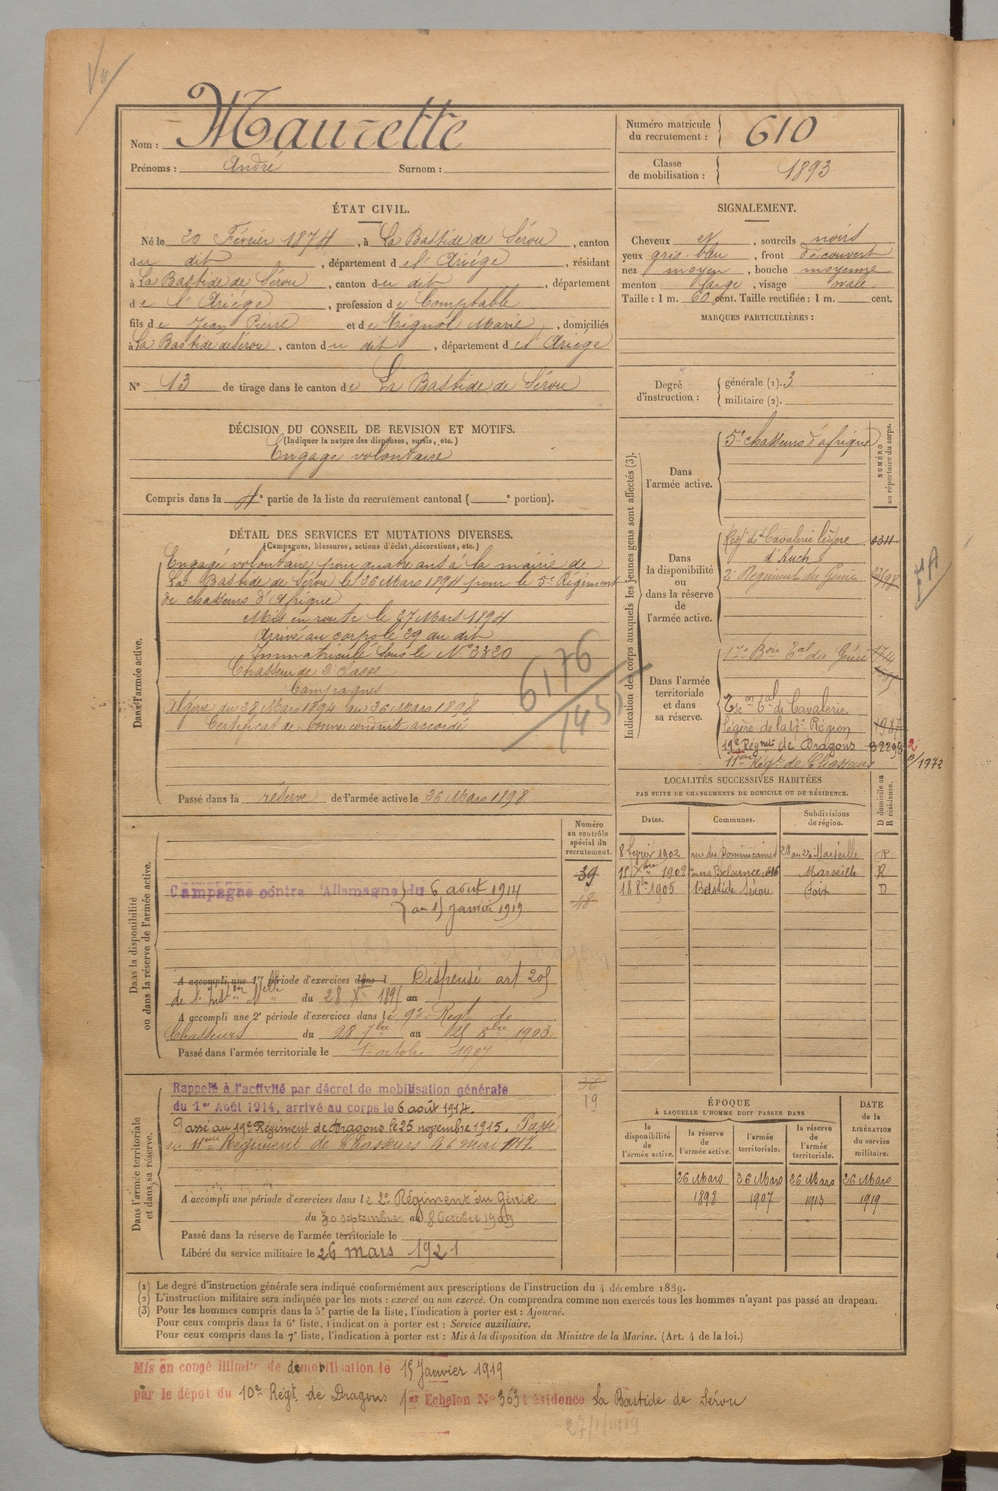 Maurette
Nom :
Prénoms : André Surnom :
Numéro matricule du recrutement : 610
Classe de mobilisation : 1893
ÉTAT CIVIL.
Né le 20 Février 1874, à La Bastide de Sérou, canton
du dit, département de l'Ariège, résidant
à La Bastide de Sérou, canton du dit, département
de l'Ariège, profession de Comptable
fils de Jean Pierre et de Mignol Marie, domiciliés
à La Bastide de Sérou, canton du dit, département de l'Ariège
N° 13 de tirage dans le canton de La Bastide de Sérou
SIGNALEMENT.
Cheveux et, sourcils noirs
yeux gris bleu, front découvert
nez moyen, bouche moyenne
menton large, visage ovale
Taille : 1 m. 60 cent. Taille rectifiée : 1 m. cent.
MARQUES PARTICULIÈRES :
Degré d'instruction : générale (1). 3
militaire (2).
DÉCISION DU CONSEIL DE REVISION ET MOTIFS.
(Indiquer la nature des dispenses, sursis, etc.)
Engagé volontaire
Compris dans la 4e partie de la liste du recrutement cantonal ( e portion).
DÉTAIL DES SERVICES ET MUTATIONS DIVERSES.
(Campagnes, blessures, actions d'éclat, décorations, etc.)
Dans l'armée active.
Engagé volontaire pour quatre ans à la mairie de
La Bastide de Sérou le 26 Mars 1894 pour le 5e Régiment
de chasseurs d'Afrique
Mis en route le 27 Mars 1894
Arrivé au corps le 29 au dit
Immatriculé sous le N° 2320
Chasseur de 2e classe
Campagnes
Algérie du 28 Mars 1894 au 26 Mars 1898
Certificat de bonne conduite accordé
6176
Passé dans la réserve de l'armée active le 26 Mars 1898
Indication des corps auxquels les jeunes gens sont affectés (3).
NUMÉRO au répertoire du corps.
Dans l'armée active.
5e chasseurs d'afrique
Dans la disponibilité ou dans la réserve de l'armée active.
Régt de Cavalerie légère
d'Auch
2e Régiment du Génie
Dans l'armée territoriale et dans sa réserve.
17e Bon Tal du Génie
Cavalerie
légère de la 17e Région
19e Régiment de Dragons
11ème Régt de Chasseurs
LOCALITÉS SUCCESSIVES HABITÉES
PAR SUITE DE CHANGEMENTS DE DOMICILE OU DE RÉSIDENCE.
Dates. Communes. Subdivisions de région. D domicile ou R résidence.
8 février 1902 rue des Dominicaines Marseille R
15 Xbre 1902 Marseille R
18 8bre 1905 Bastide Sérou Foix D
Dans la disponibilité ou dans la réserve de l'armée active.
Numéro au contrôle spécial du recrutement.
39
48
Campagne contre l'Allemagne du 6 août 1914
au 15 Janvier 1919
A accompli une 1re période d'exercices dans l Dispensé art 205
de l' du 28 Xbre 1895 au
A accompli une 2e période d'exercices dans le 9e Régt de
Chasseurs du 28 7bre au 25 8bre 1903
Passé dans l'armée territoriale le 1er octobre 1907
Dans l'armée territoriale et dans sa réserve.
19
Rappelé à l'activité par décret de mobilisation générale
du 1er Août 1914, arrivé au corps le 6 août 1914.
Passé au 19e Régiment de Dragons le 25 novembre 1915. Passé
au 11ème Régiment de Chasseurs le 6 mai 1917
A accompli une période d'exercices dans le 2e Régiment du Génie
du 30 septembre au 8 Octobre 1909
Passé dans la réserve de l'armée territoriale le
Libéré du service militaire le 26 mars 1921
ÉPOQUE
À LAQUELLE L'HOMME DOIT PASSER DANS
DATE de la LIBÉRATION du service militaire.
la disponibilité de l'armée active. la réserve de l'armée active. l'armée territoriale. la réserve de l'armée territoriale.
26 Mars 26 Mars 26 Mars 26 Mars
1898 1907 1913 1919
(1) Le degré d'instruction générale sera indiqué conformément aux prescriptions de l'instruction du 4 décembre 1889.
(2) L'instruction militaire sera indiquée par les mots : exercé ou non exercé. On comprendra comme non exercés tous les hommes n'ayant pas passé au drapeau.
(3) Pour les hommes compris dans la 5e partie de la liste, l'indication à porter est : Ajourné.
Pour ceux compris dans la 6e liste, l'indication à porter est : Service auxiliaire.
Pour ceux compris dans la 7e liste, l'indication à porter est : Mis à la disposition du Ministre de la Marine. (Art. 4 de la loi.)
Mis en congé illimité de démobilisation le 15 Janvier 1919
par le dépôt du 10e Régt. de Dragons 1er Echelon N° 363 résidence La Bastide de Sérou
27/1/1919